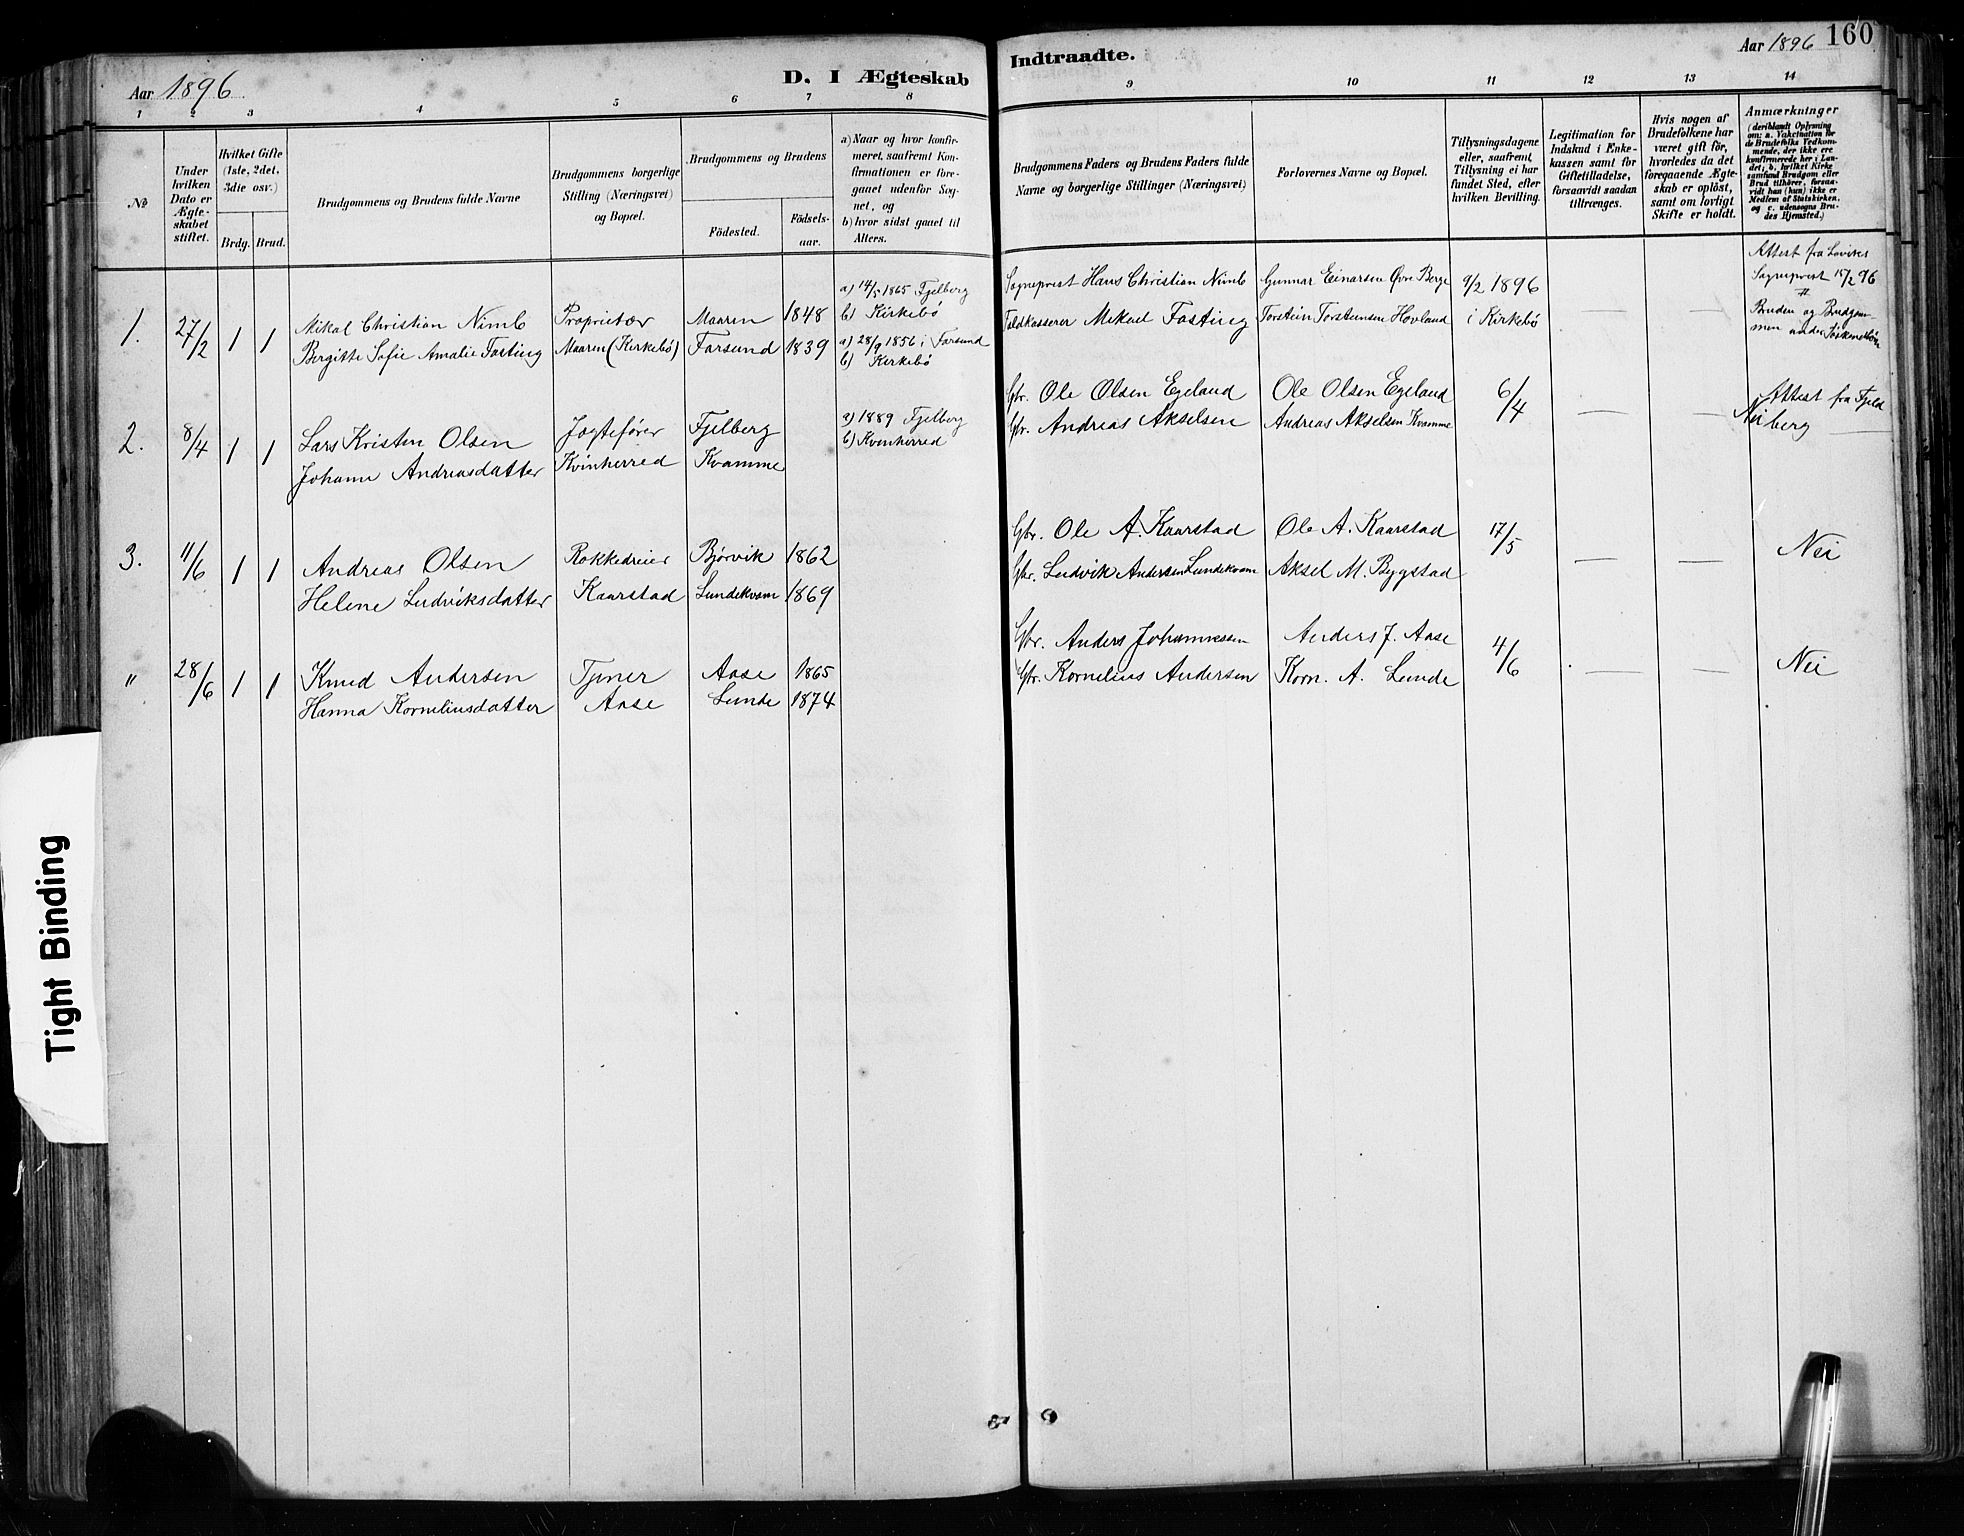 Aar 1896
D. I Ægteskab
Indtraadte.
Aar 1896
160
1 2 3 4 5 6 7 8
9 10 11 12 13 14
№
Under hvilken Dato er Ægteskabet stiftet.
Hvilket Gifte (1ste, 2det, 3die osv.)
Brdg. Brud.
Brudgommens og Brudens fulde Navne
Brudgommens borgerlige Stilling (Næringsvei) og Bopæl.
Brudgommens og Brudens
Födested.
Födselsaar.
a) Naar og hvor konfirmeret, saafremt Konfirmationen er foregaaet udenfor Sognet, og
b) hvor sidst gaaet til Alters.
Brudgommens Faders og Brudens Faders fulde Navne og borgerlige Stillinger (Næringsvei)
Forlovernes Navne og Bopæl.
Tillysningsdagene eller, saafremt Tillysning ei har fundet Sted, efter hvilken Bevilling.
Legitimation for Indskud i Enkekassen samt for Giftetilladelse, forsaavidt saadan tiltrænges.
Hvis nogen af Brudefolkene har været gift för, hvorledes da det foregaaende Ægteskab er oplöst, samt om lovligt Skifte er holdt.
Anmærkninger (deriblandt Oplysning om: a. Vakcination for de Brudefolks Vedkommende, der ikke ere konfirmerede her i Landet, b. hvilket Kirkesamfund Brudgom eller Brud tilhörer, forsaavidt han (hun) ikke er Medlem af Statskirken, og c. udensogns Brudes Hjemsted.)
1. 27/2 1 1 Mikal Christian Nimb Proprietær Maaren 1848 a) 14/5 1865 Fjelberg
b) Kirkebö
Bergitte Sofie Amalie Fasting Maaren (Kirkebö) Farsund 1839 a) 28/9 1856 i Farsund
b) Kirkebö
Sogneprest Hans Christian Nimb Gunnar Einarsen Øvre Berge 9/2 1896
Toldkasserer Mikael Fasting Torstein Torsteinsen Hovland i Kirkebö
Attest fra Laviks
Sogneprest 15/2 96
Bruden og Brudgommen
2. 8/4 1 1 Lars Kristen Olsen Jagtefører Fjelberg a) 1889 Fjelberg
b) Kvinherred
Johanne Andreasdatter Kvinherred Kvamme
Gbr. Ole Olsen Egeland Ole Olsen Egeland 6/4
Gbr. Andreas Akselsen Andreas Akselsen Kvamme
Attest fra Fjeld
Nei berg
3. 11/6 1 1 Andreas Olsen Rokkedreier Bjørvik 1862
Helene Ludviksdatter Kaarstad Lundekvam 1869
Gbr. Ole A. Kaarstad Ole A. Kaarstad 17/5
Gbr. Ludvik Andersen Lundekvam Aksel M. Bygstad
Nei
" 28/6 1 1 Knud Andersen Tjener Aase 1865
Hanna Korneliusdatter Aase Lunde 1874
Gbr. Anders Johannessen Anders J. Aase 4/6
Gbr. Kornelius Andersen Korn. A. Lunde
Nei
Tight Binding